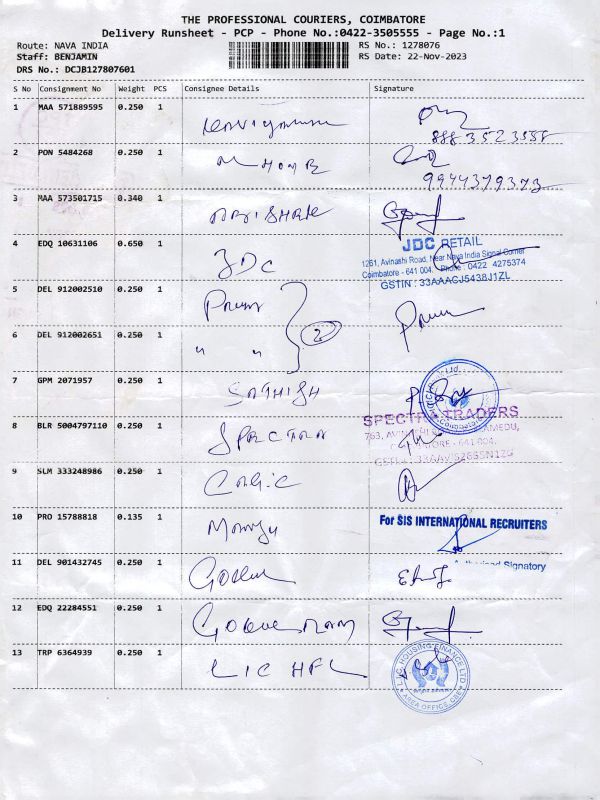 THE PROFESSIONAL COURIERS, COIMBATORE
Delivery Runsheet - PCP - Phone No.:0422-3505555 - Page No.:1
Route: NAVA INDIA RS No.: 1278076
Staff: BENJAMIN RS Date: 22-Nov-2023
DRS No.: DCJB127807601
S No Consignment No Weight PCS Consignee Details Signature
1 MAA 571889595 0.250 1
8883523558
2 PON 5484268 0.250 1
9944379373
3 MAA 573501715 0.340 1 ABISHAK
4 EDQ 10631106 0.650 1 JDC JDC RETAIL
1261, Avinashi Road, Near Nava India Signal Corner
Coimbatore - 641 004. Phone: 0422 4275374
GSTIN : 33AAACJ5438J1ZL
5 DEL 912002510 0.250 1
2
6 DEL 912002651 0.250 1 " "
7 GPM 2071957 0.250 1 SATHISH
8 BLR 5004797110 0.250 1 SPECTRA SPECTRA TRADERS
9 SLM 333248986 0.250 1
10 PRO 15788818 0.135 1 For SIS INTERNATIONAL RECRUITERS
Authorised Signatory
11 DEL 901432745 0.250 1
12 EDQ 22284551 0.250 1
13 TRP 6364939 0.250 1 LIC HFL L.I.C. HOUSING FINANCE LTD
AREA OFFICE, CBE